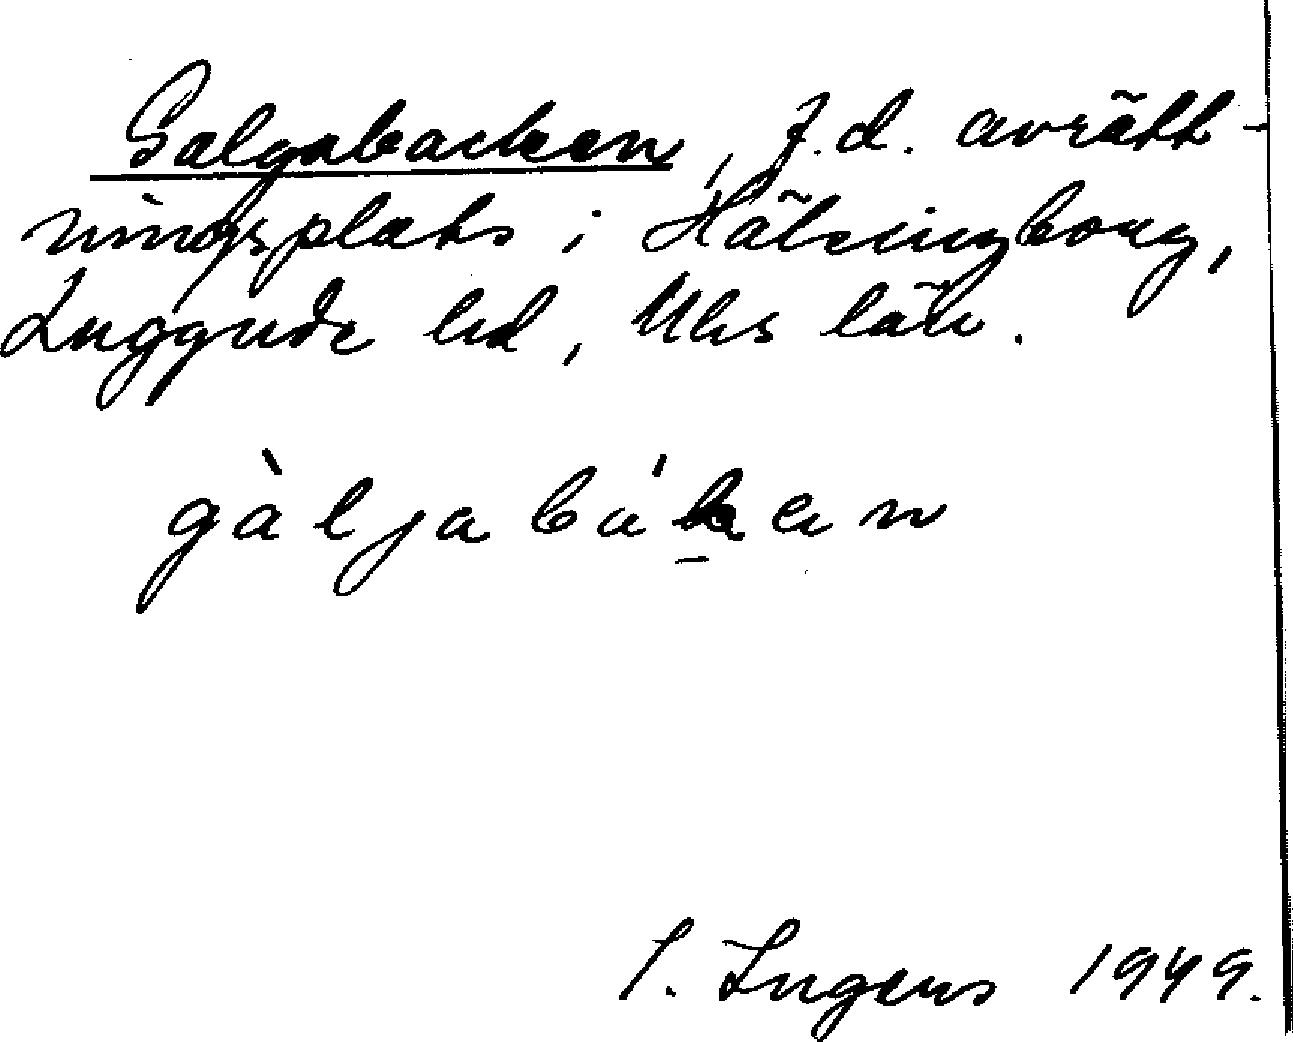 Galgabacken, f.d. avrätt-
ningsplats i Hälsingborg,
Luggude hd, Mhs län.
gàljabák̠an
I. Ingers 1949.